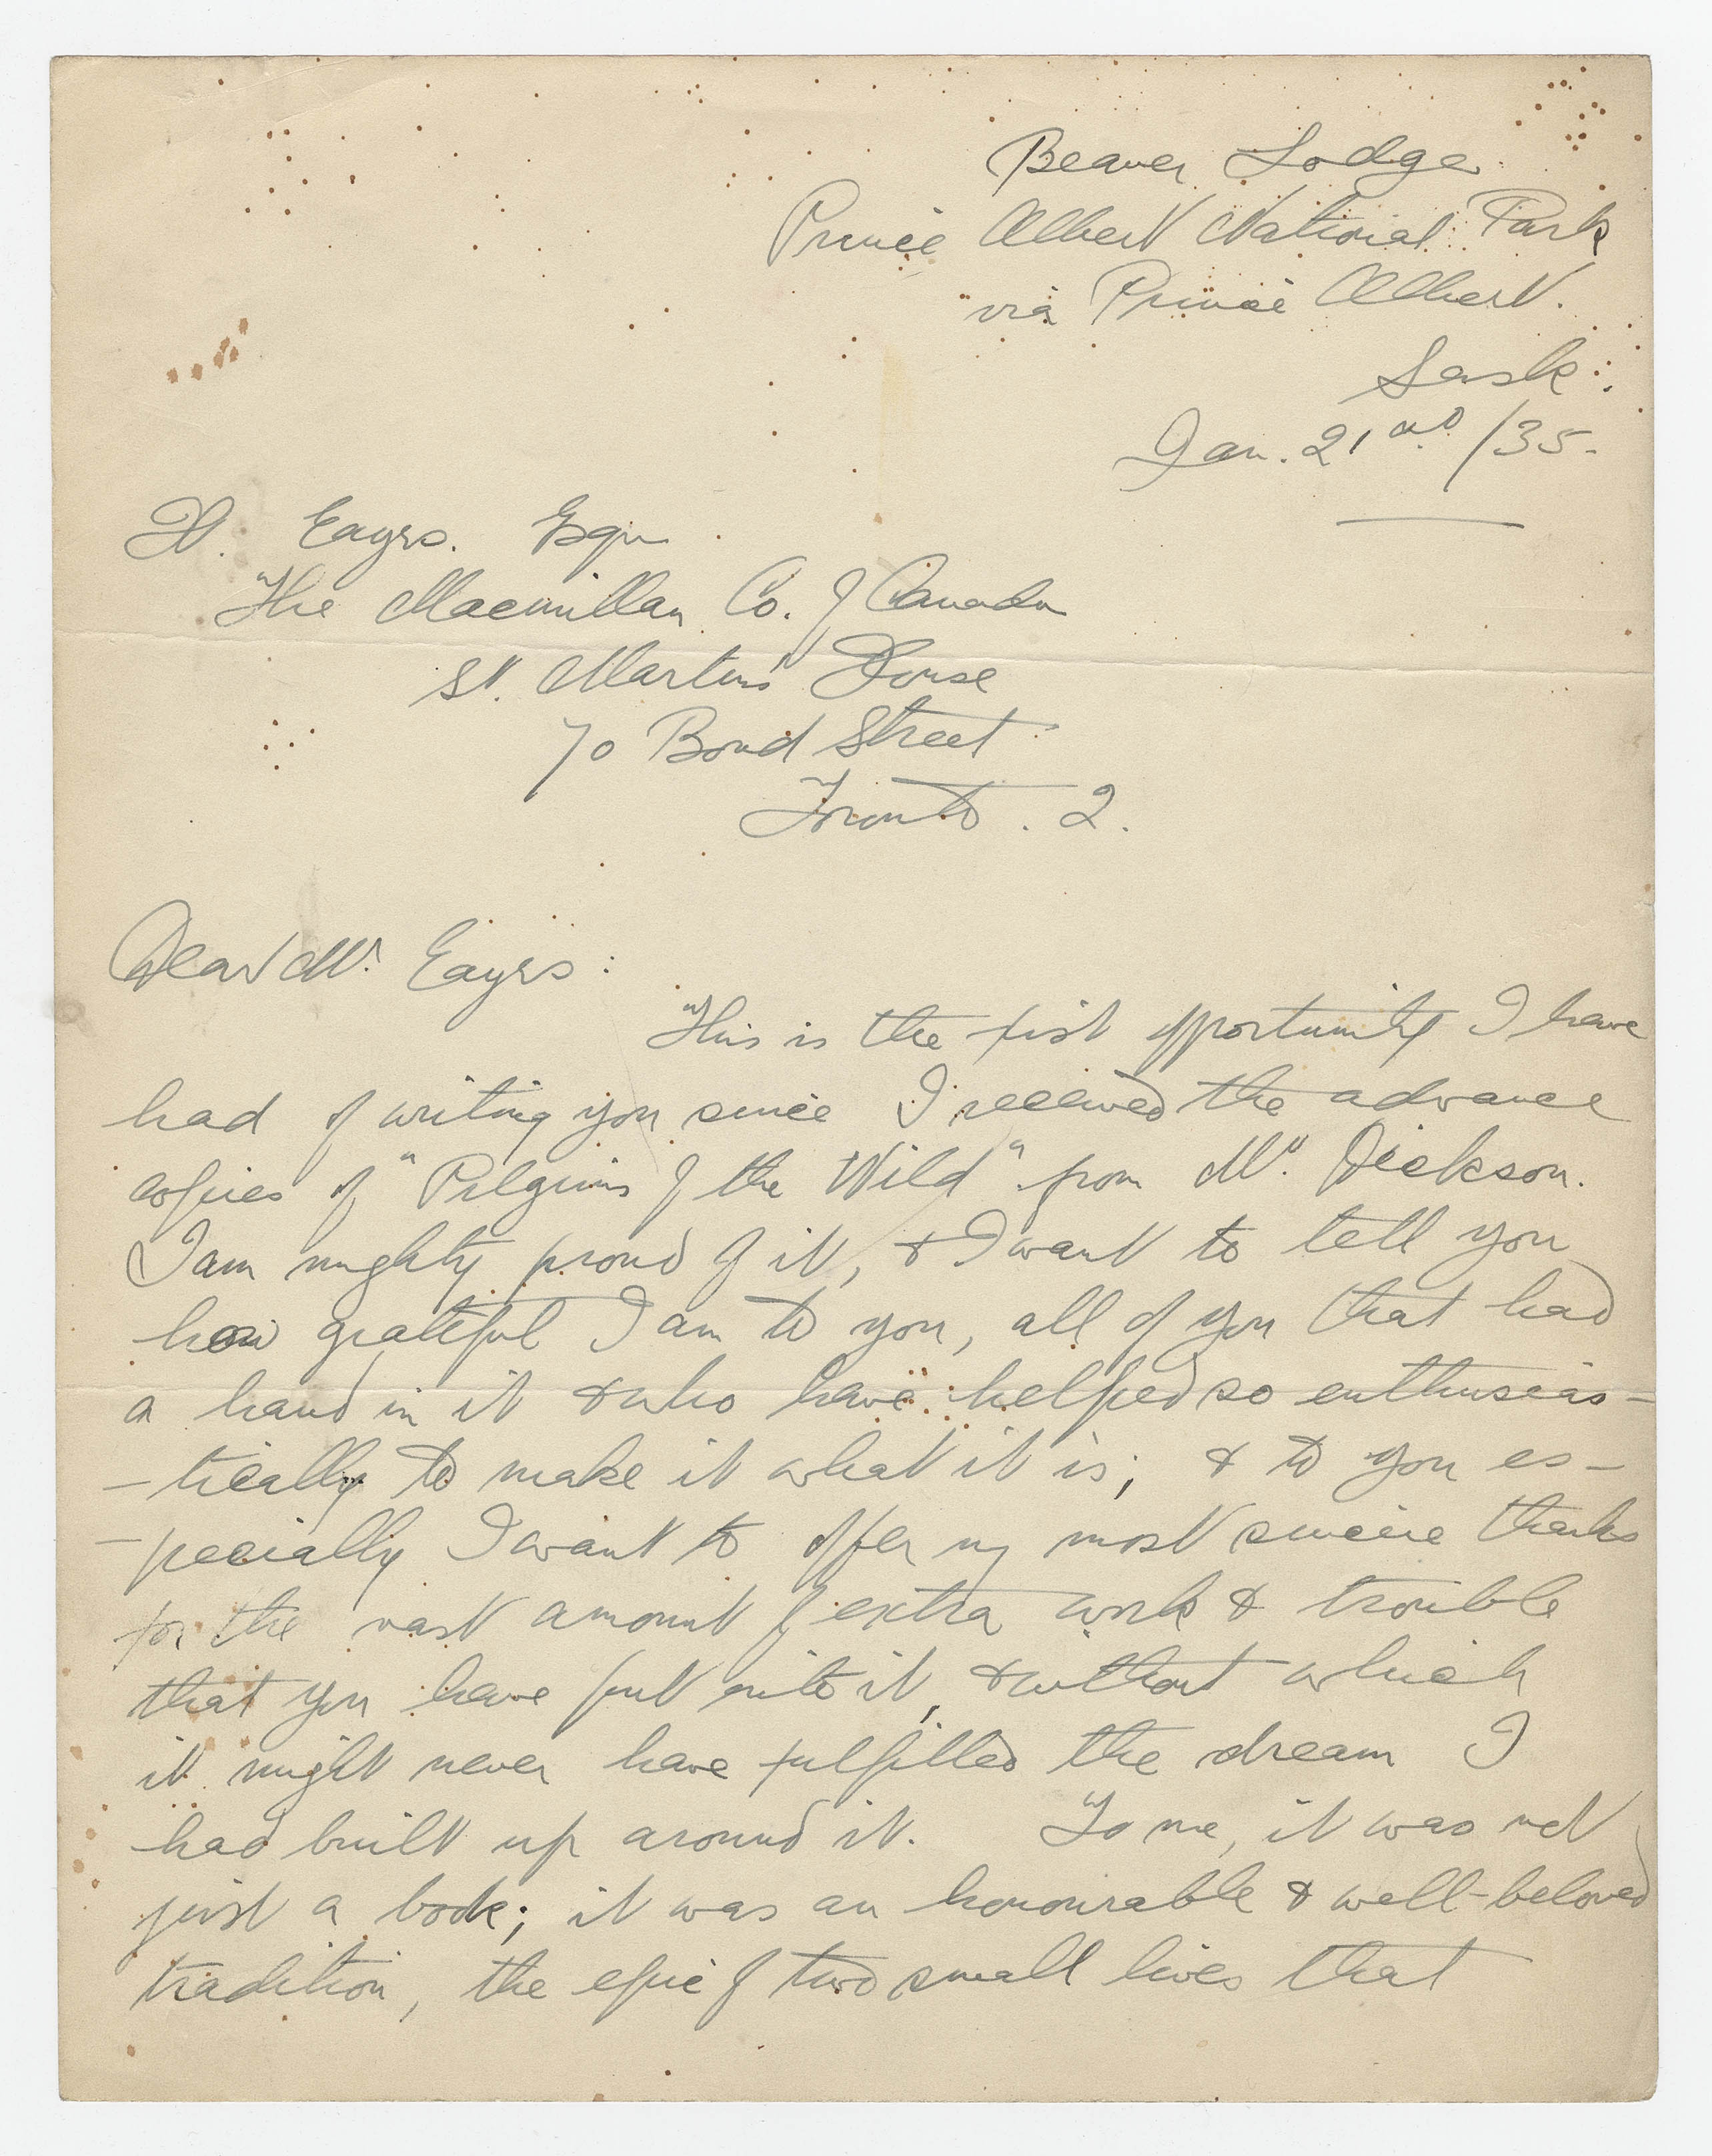 Beaver Lodge
Prince Albert National Park
via Prince Albert.
Sask:
Jan. 21st /35.
H. Eayrs. Esqr
The Macmillan Co. of Canada
St. Martins' House
70 Bond Street
Toronto. 2.
Dear Mr. Eayrs:
This is the first opportunity I have
had of writing you since I received the advance
copies of "Pilgrims of the Wild" from Mr. Dickson.
I am mighty proud of it, & I want to tell you
how grateful I am to you, all of you that had
a hand in it & who have helped so enthusias-
-tically to make it what it is; & to you es-
-pecially I want to offer my most sincere thanks
for the vast amount of extra work & trouble
that you have put into it, & without which
it might never have fulfilled the dream I
had built up around it. To me, it was not
just a book; it was an honourable & well-beloved
tradition, the epic of two small lives that